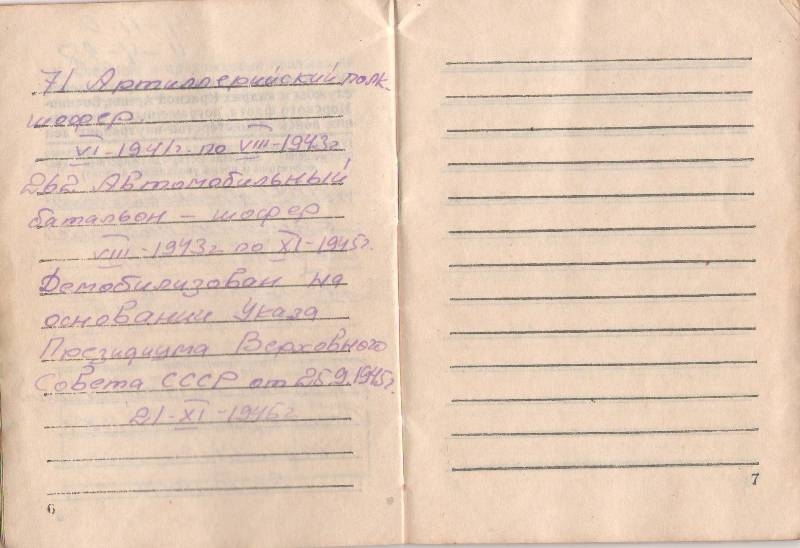 71 Артиллерийский полк-
шофер.
VI-1941г. по VIII-1943г
262 Автомобильный
батальон – шофер
VIII-1943г. по XI-1945г.
Демобилизован на
основании Указа
Президиума Верховного
Совета СССР от 25.9.1945г.
21-XI-1945г.
6
7